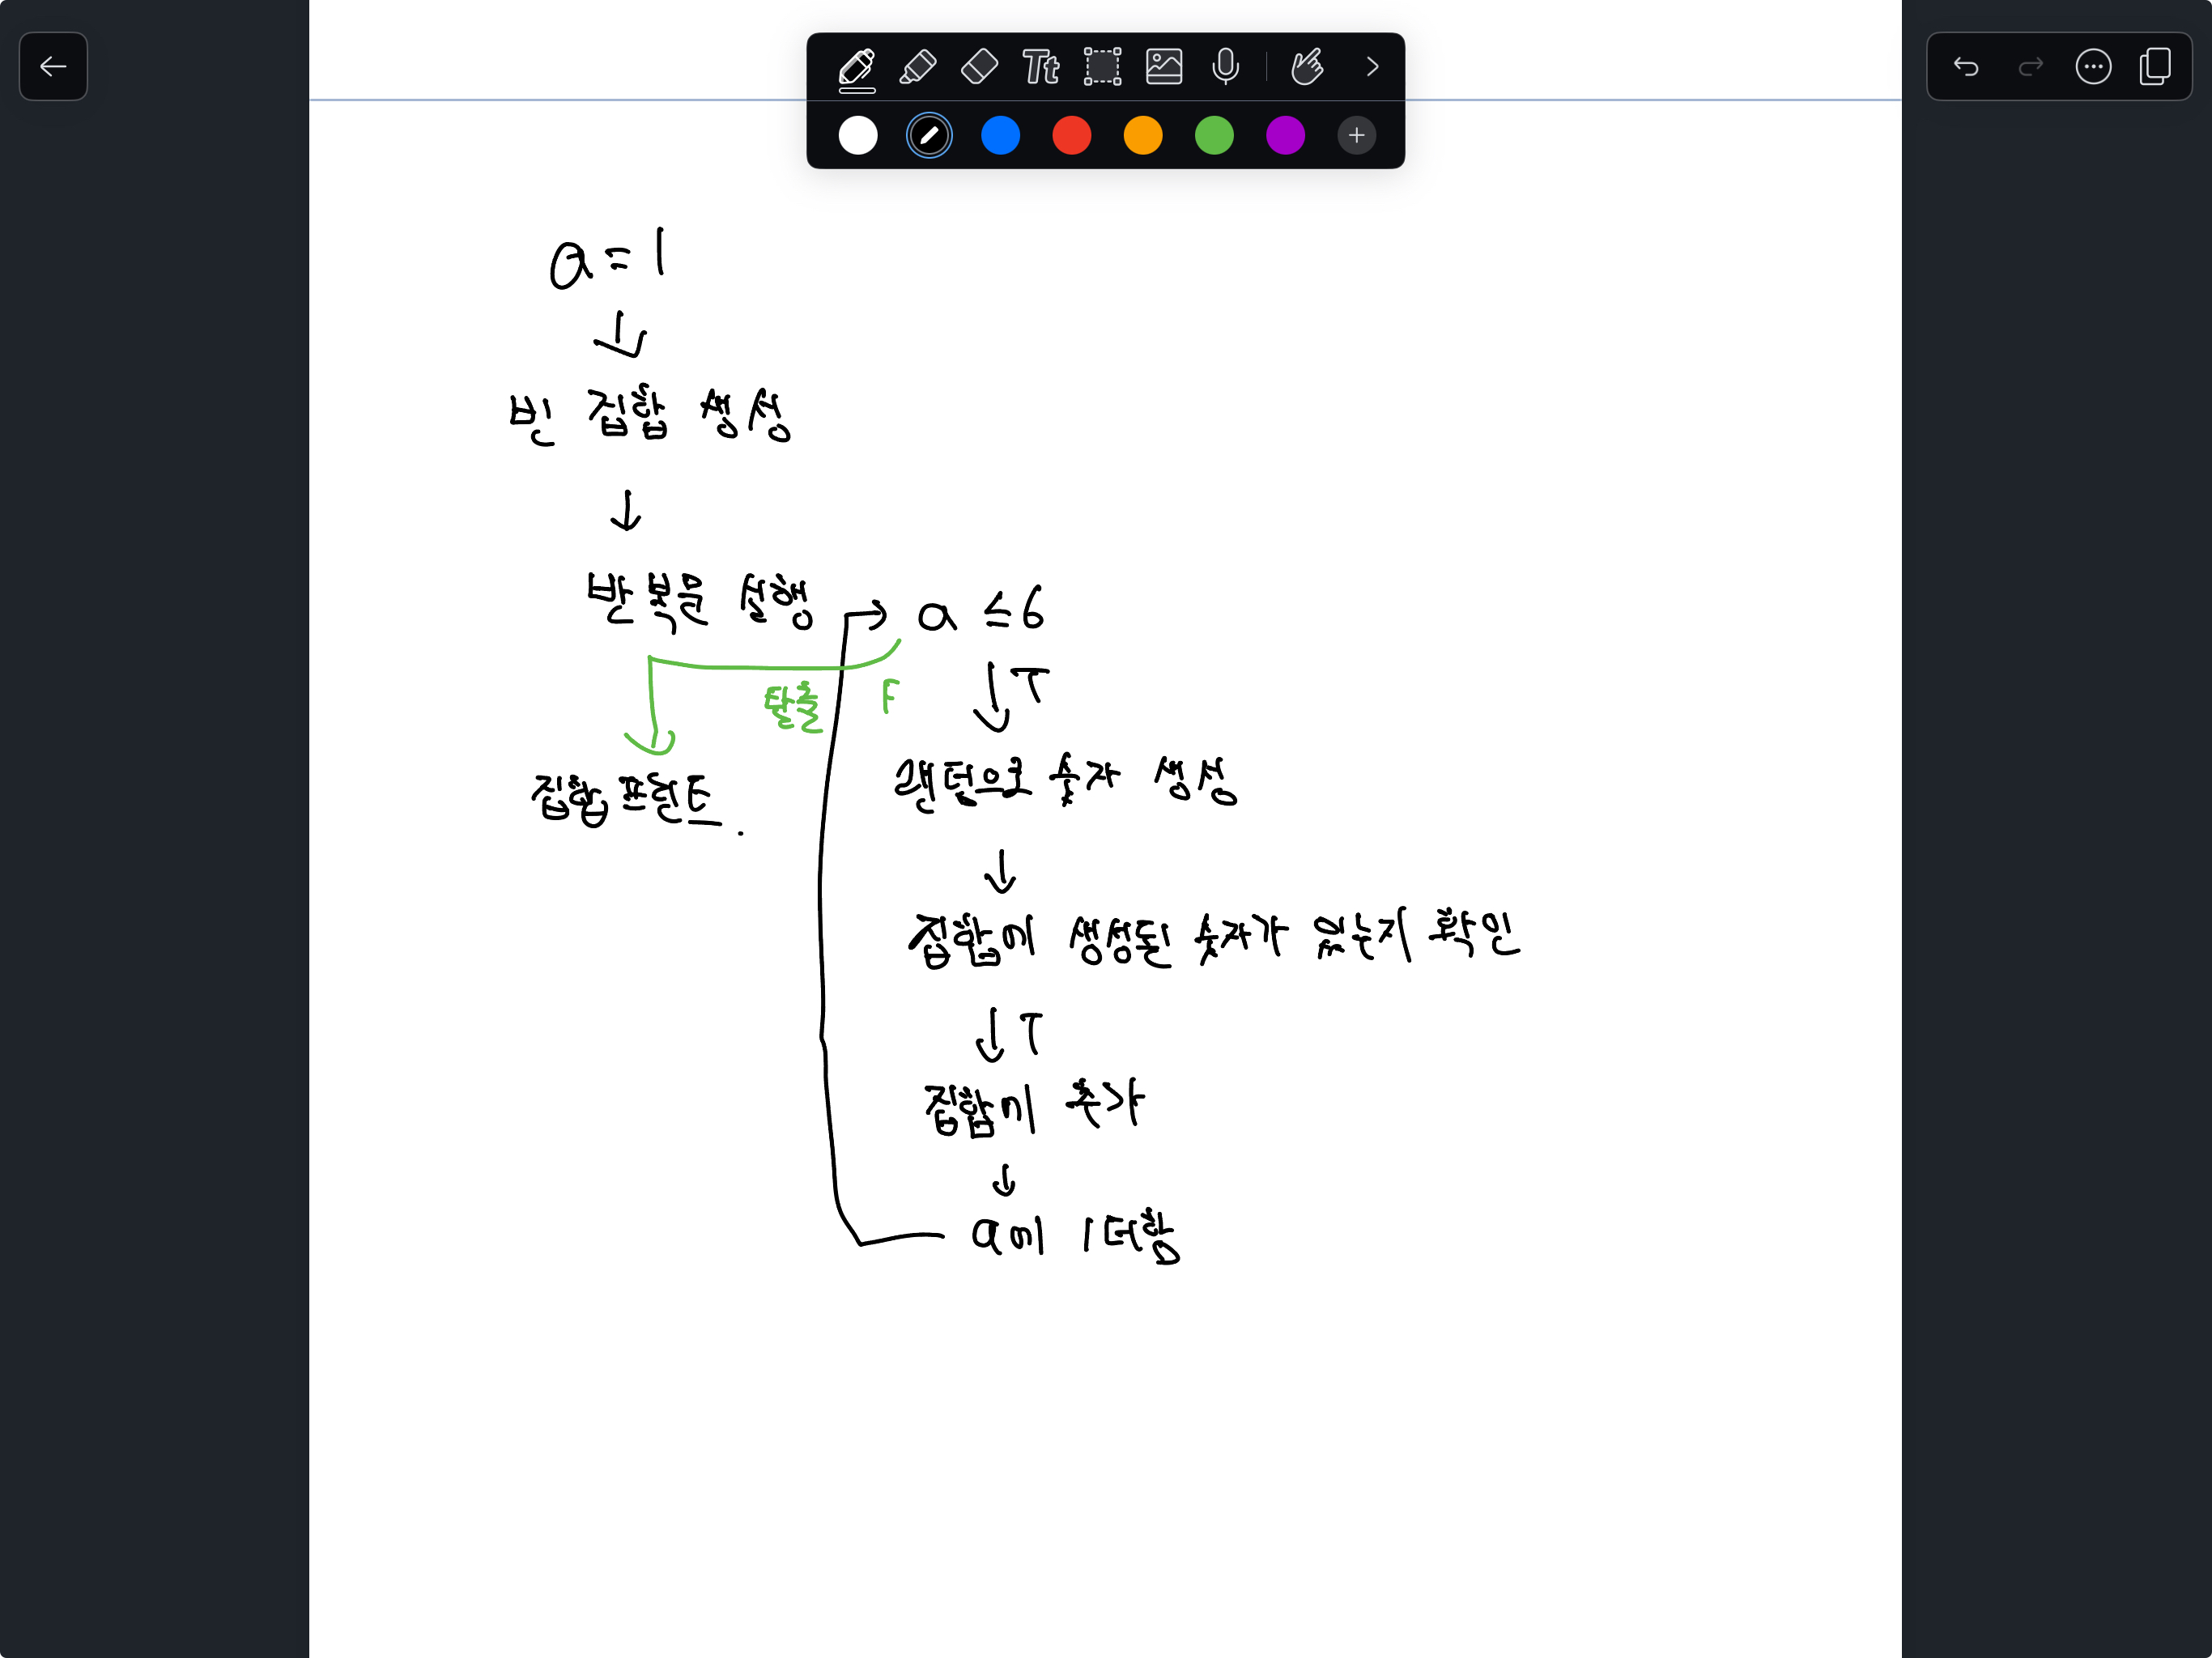 a = 1
빈 집합 생성
반복문 실행
a ≤ 6
탈출 F
T
집합 프린트.
랜덤으로 숫자 생성
집합에 생성된 숫자가 있는지 확인
T
집합에 추가
a에 1 더함
Tt